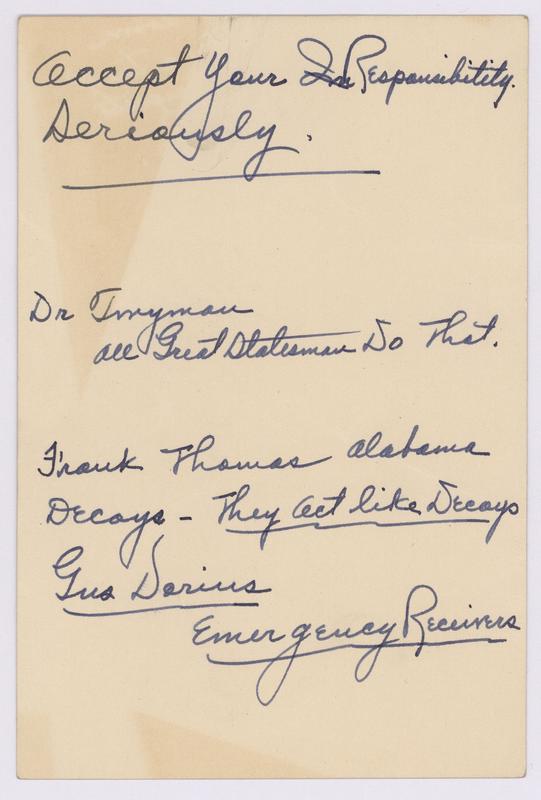 Accept Your Responsibility.
Seriously.
Dr Twyman
all Great Statesman Do That.
Frank Thomas Alabama
Decoys - They act like Decoys
Gus Dorius
Emergency Receivers